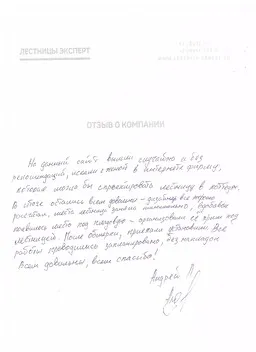 ЛЕСТНИЦЫ ЭКСПЕРТ
ОТЗЫВ О КОМПАНИИ
На данный сайт вышли случайно и без
рекомендаций, искали с женой в интернете фирму,
которая могла бы спроектировать лестницу в коттедж.
В итоге остались всем довольны - дизайнер все хорошо
рассчитал, место лестница заняла минимально, вдобавок
появилось место под кладовую - организовали её прям под
лестницей. После обмерки, приехали установили. Все
работы проводились запланировано, без накладок
Всем довольны, всем спасибо!
Андрей Л.